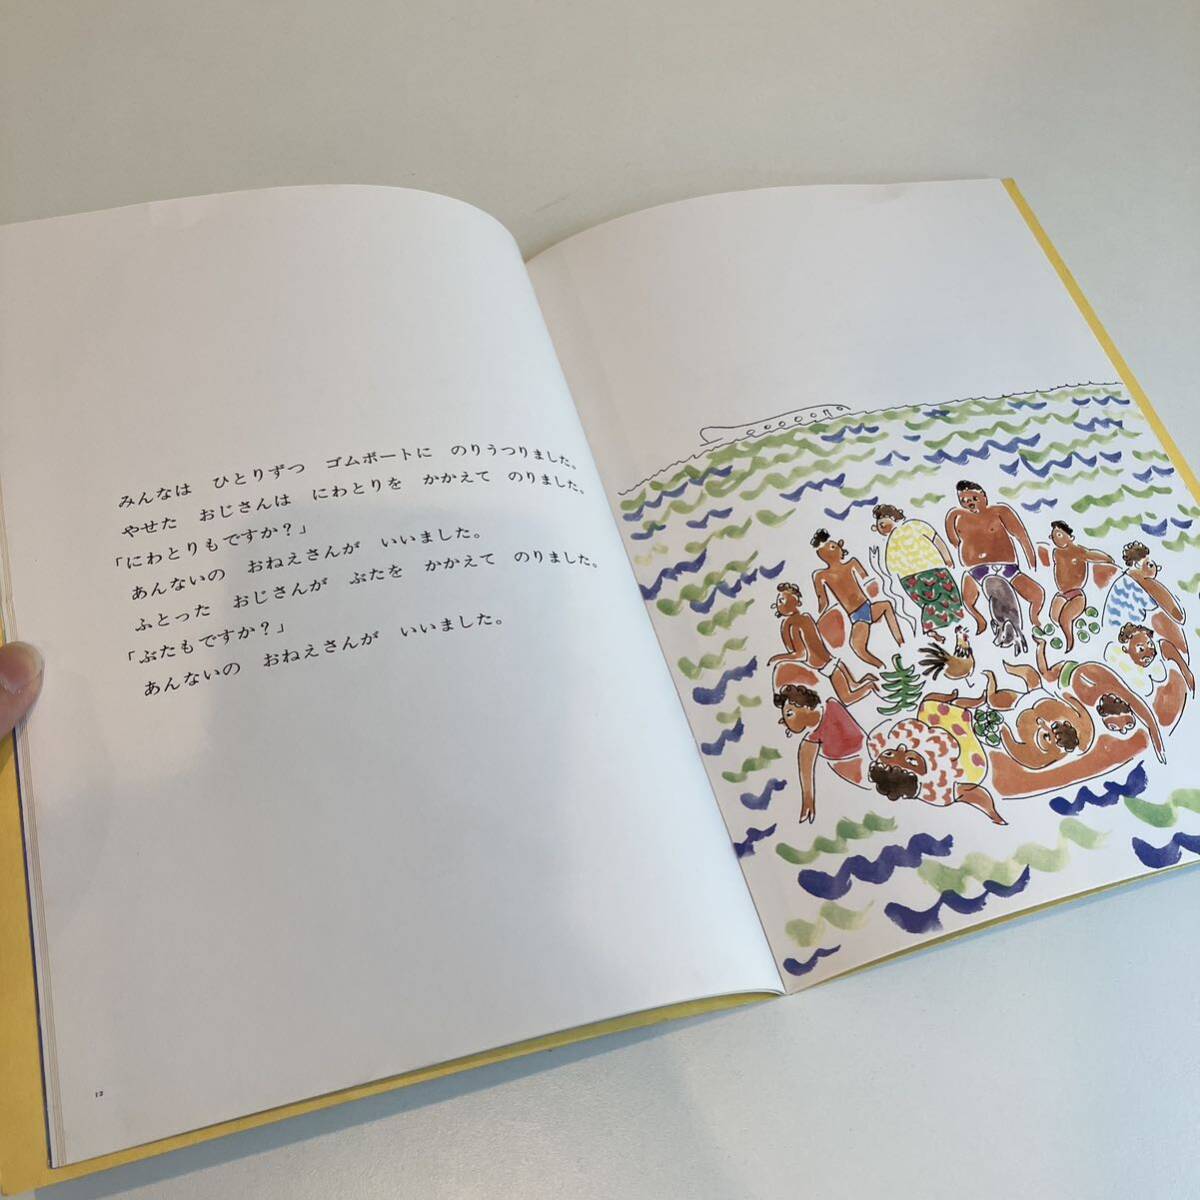 みんなは　ひとりずつ　ゴムボートに　のりうつりました。
やせた　おじさんは　にわとりを　かかえて　のりました。
「にわとりもですか？」
あんないの　おねえさんが　いいました。
ふとった　おじさんが　ぶたを　かかえて　のりました。
「ぶたもですか？」
あんないの　おねえさんが　いいました。
12